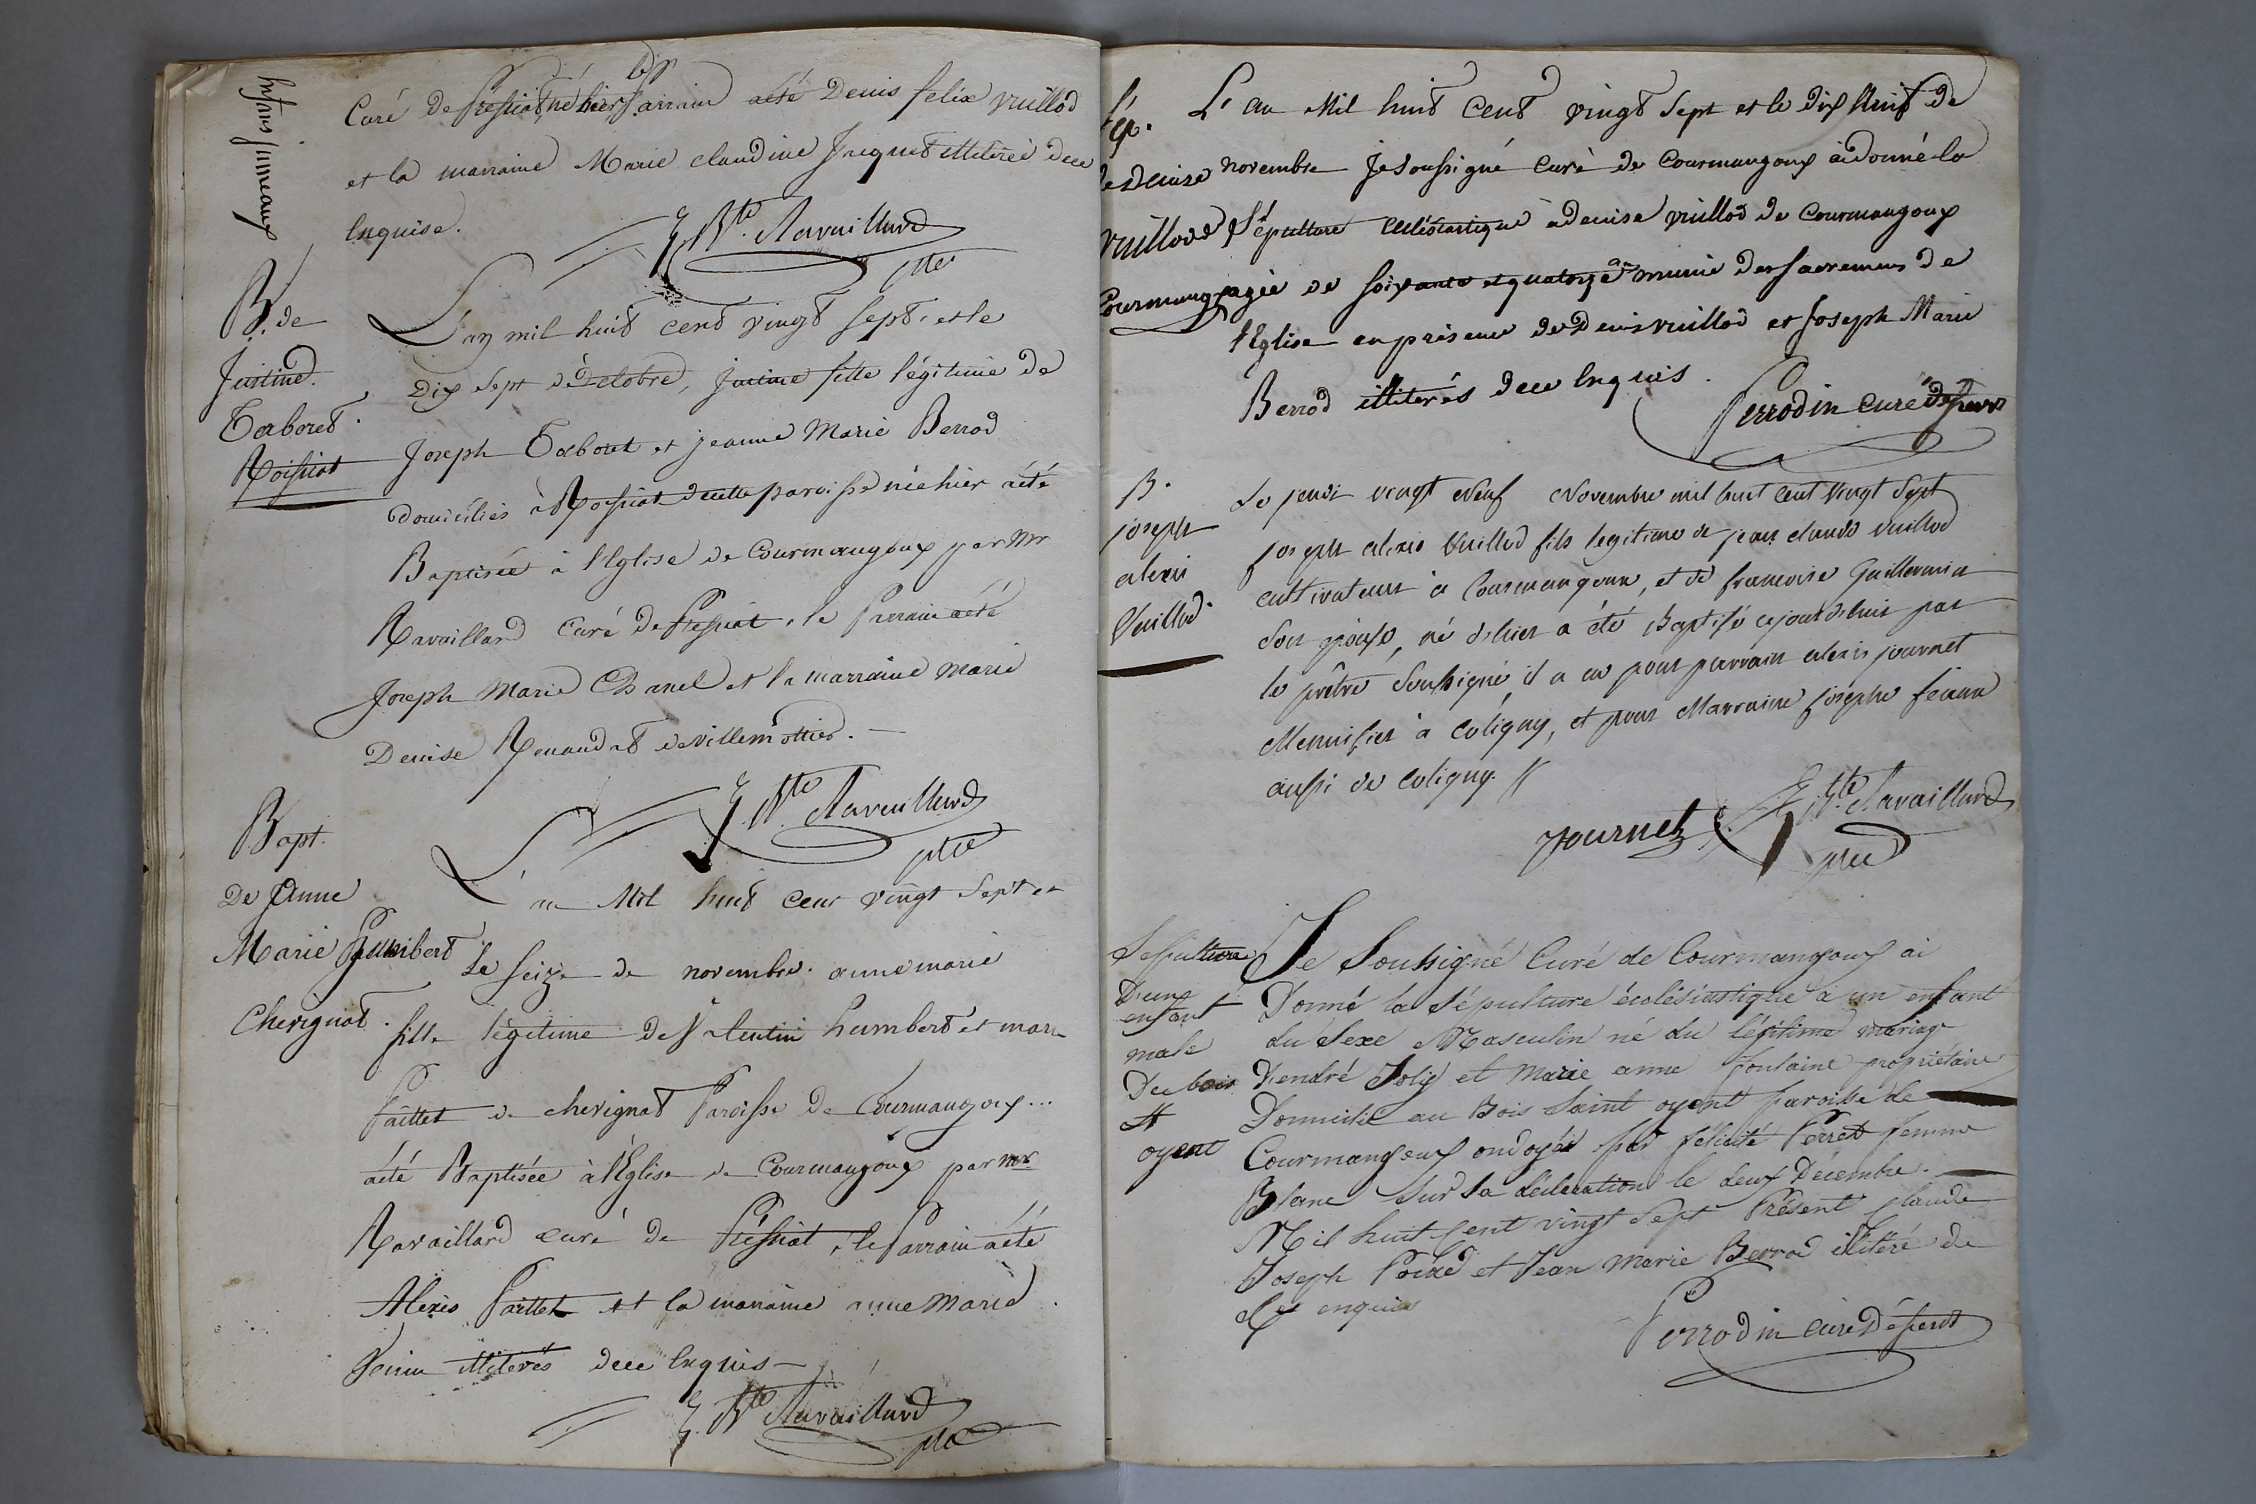 Enfans jumeaux
Curé de Pressiat, né hier le Parrain aété Denis felix vuillod
et la marraine Marie claudine Jrequet illiterée dece
enquise.
J Bte Ravaillard
ptre
B. de
Justine
Taboret.
Roissiat
L'an mil huit cent vingt sept, et le
dix sept d'octobre, Justine fille légitime de
Joseph Taboret et jeanne Marie Berrod
domiciliés à Roissiat de cette paroisse née hier aété
Baptisée à l'Eglise de Courmangoux par Mr
Ravaillard Curé de Pressiat, le Parrain aété
Joseph Marie Chanel et la marraine Marie
Denise Renaudat de villemottier.
J Bte Ravaillard
ptre
Bapt.
De Anne
Marie humbert
Chevignat.
L'an Mil huit cent vingt Sept et
le seize de novembre. anne marie
fille légitime de Valentin humbert et marie
Paillet de chevignat Paroisse de Courmangoux...
aété Baptisée à l'Eglise de Courmangoux par mr
Ravaillard curé de Préssiat, le Parrain aété
Alexis Paillet et la maraine anne Marie
illiterés dece enquis
J Bte Ravaillard
ptre
Sép.
de Denise
Vuillod
Courmangoux
L'an Mil huit cent vingt sept et le dix huit de
novembre je soussigné curé de Courmangoux ai donné la
Sépulture ecclésiastique à denise vuillod de Courmangoux
agée de soixante et quatorze an munie des sacremens de
l'Eglise en présence de Denis vuillod et Joseph Marie
Berrod illiterés dece enquis.
Perrodin curé Dessert
B.
joseph
alexis
Vuillod.
Le jeudi vingt Neuf Novembre mil huit cent vingt sept
joseph alexis Vuillod fils legitime de jean claude vuillod
cultivateur à Courmangoux, et de francoise Guillermin
son épouse, né d'hier a été Baptisé cejourdehui par
le prêtre Soussigné, il a eu pour parrain alexis journet
Menuisier à Coligny, et pour Marraine josephe feaux
aussi de Coligny. //
journet
J Bte Ravaillard
ptre
Sepulture
D'une
enfant
male
Du bois
St
oyent
Je Soussigné Curé de Courmangoux ai
Donné la sépulture écclésiastique à un enfant
du Sexe Masculin né du légitime mariage
D'endré Joly et Marie anne fontaine propriétaire
Domicilié au Bois Saint oyent paroisse de
Courmangoux ondoyé par félicité Perret femme
Blanc Sur Sa déclaration le deux Décembre.
Mil huit Cent vingt Sept Présent Claude
Joseph et Jean Marie Berrod illitéré de
Ce enquis
Perrodin curé Déssert